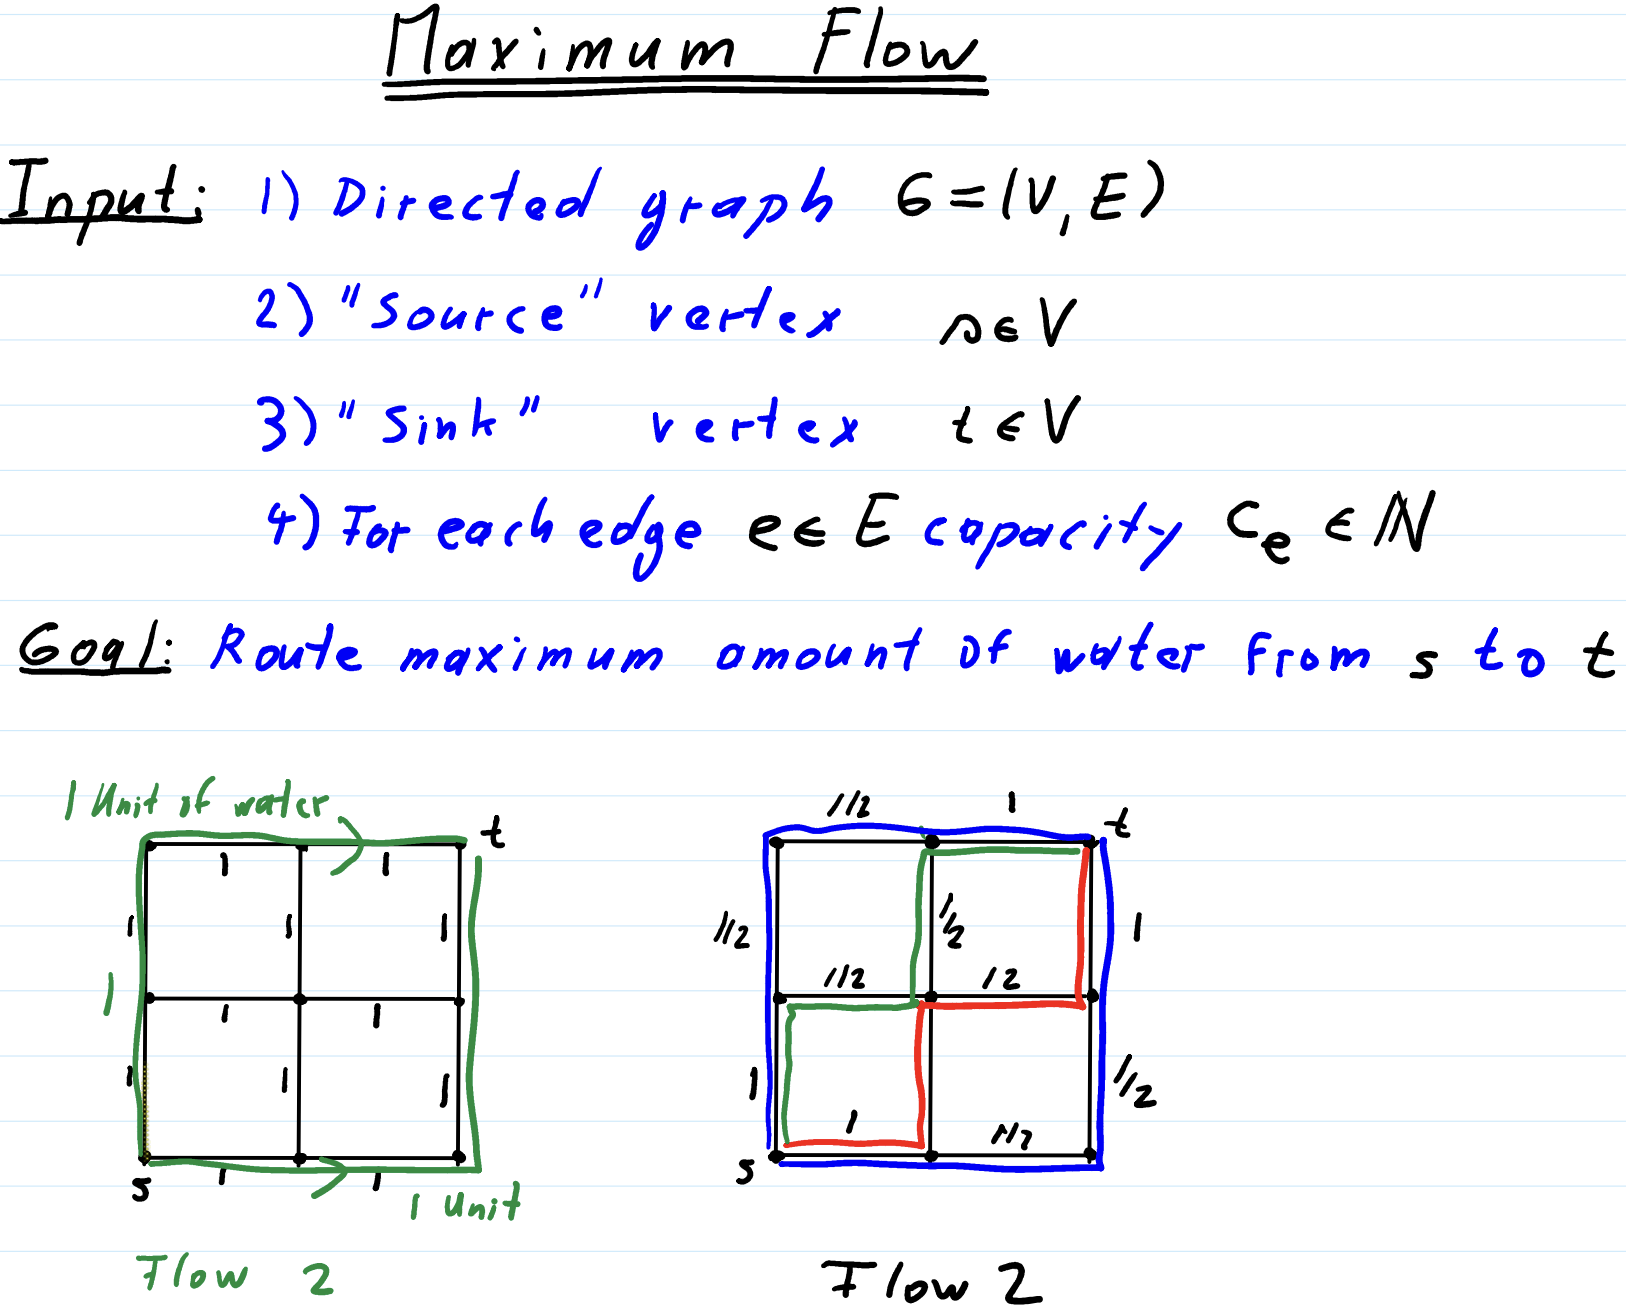 Maximum Flow
Input: 1) Directed graph G=(V,E)
2) "Source" vertex s∈V
3) "Sink" vertex t∈V
4) For each edge e∈E capacity Ce∈ℕ
Goal: Route maximum amount of water from s to t
1 Unit of water t
1 1
1 1 1
1
1 1
1 1 1
s 1 1
1 Unit
Flow 2
1/2 1 t
1/2 1/2 1
1/2 12
1 1/2
1 1/2
s
Flow 2